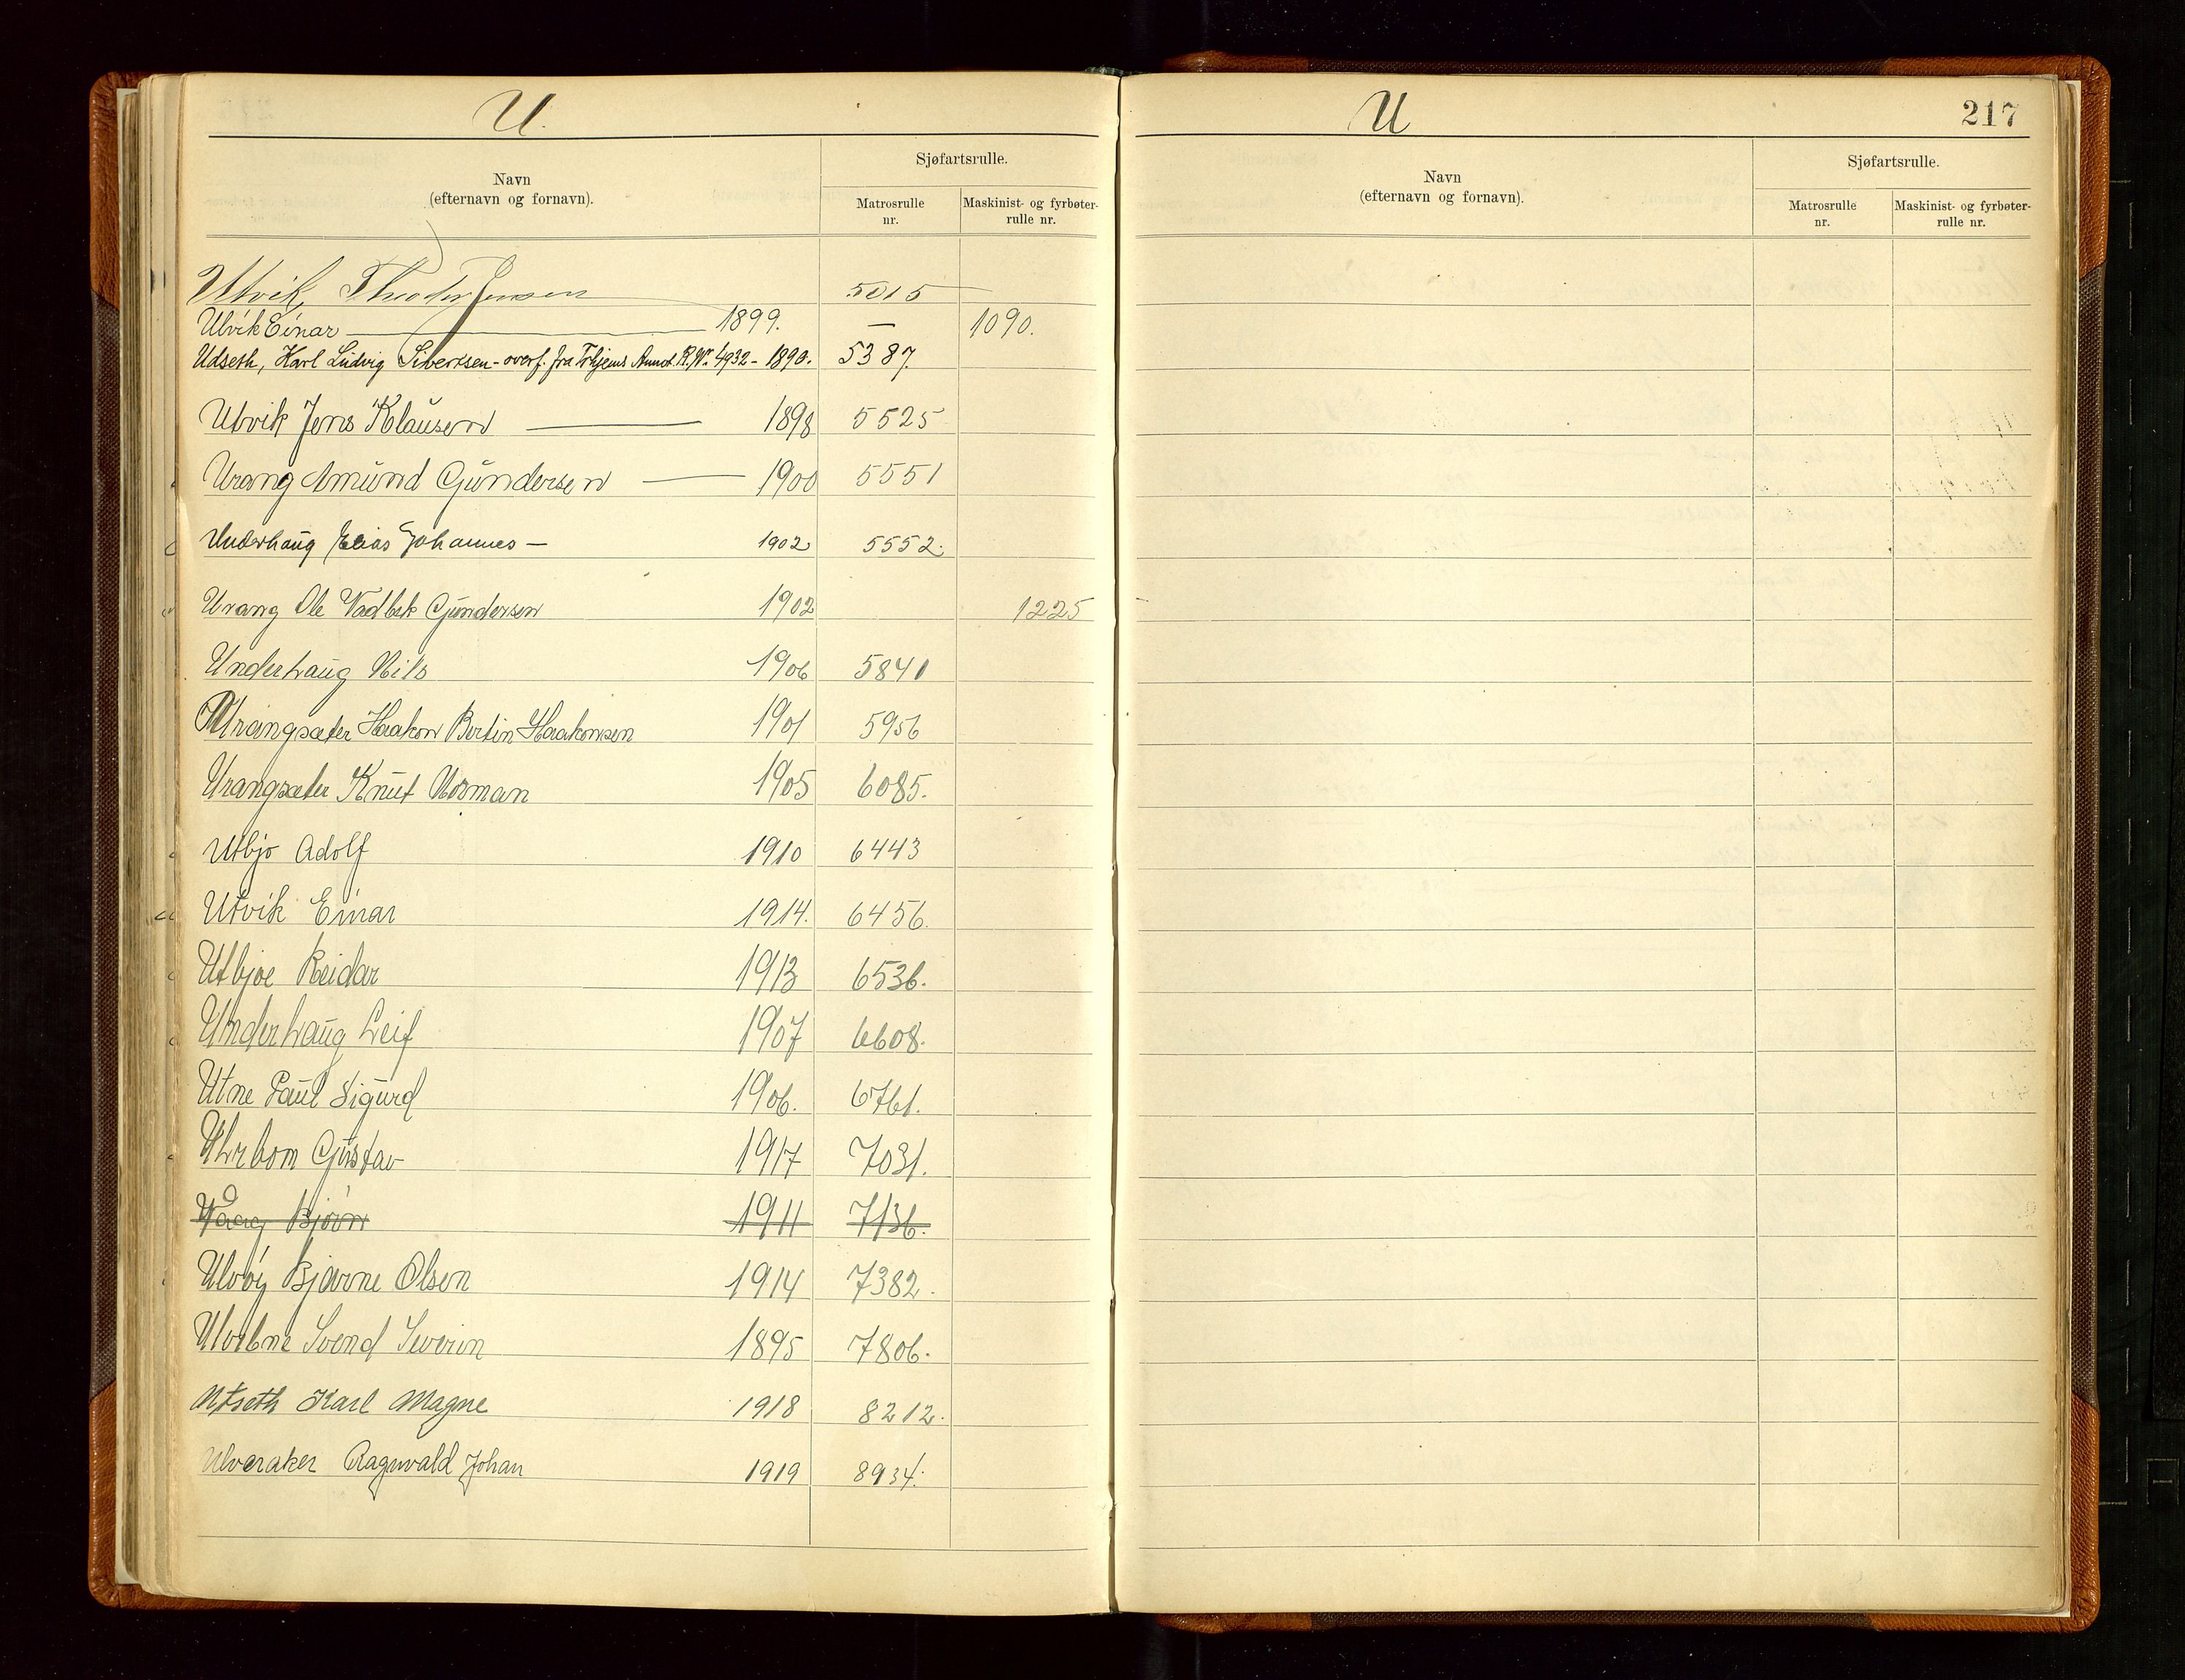 U.
Navn
(efternavn og fornavn).
Sjøfartsrulle.
Matrosrulle
nr.
Maskinist- og fyrbøter-
rulle nr.
Utvik, Theodor Jensen 5015
Ulvik Einar — 1899. — 1090.
Udseth, Karl Ludvig Sivertsen - overf. fra Trhjems Annot. R. Nr. 4932 - 1890. 5387.
Utvik Jens Klausen — 1898 5525
Urang Amund Gundersen — 1900 5551
Underhaug Elias Johannes — 1902 5552.
Urang Ole Vadbek Gundersen 1902 1225
Underhaug Nils 1906 5841
Urangsæter Haakon Bertin Haakonsen 1901 5956
Urangsæter Knut Norman 1905 6085.
Utbjo Adolf 1910 6443
Utvik Einar 1914. 6456.
Utbjoe Reidar 1913 6536.
Underhaug Leif 1907 6608.
Utne Paul Sigurd 1906. 6761.
Uhrbom Gustav 1917 7031.
Bjørn 1911 7136.
Ulvøy Bjarne Olsen 1914 7382.
Svend Severin 1895 7806.
Utseth Karl Magne 1918 8212.
Ulveraker Ragnvald Johan 1919 8934.
U
217
Navn
(efternavn og fornavn).
Sjøfartsrulle.
Matrosrulle
nr.
Maskinist- og fyrbøter-
rulle nr.